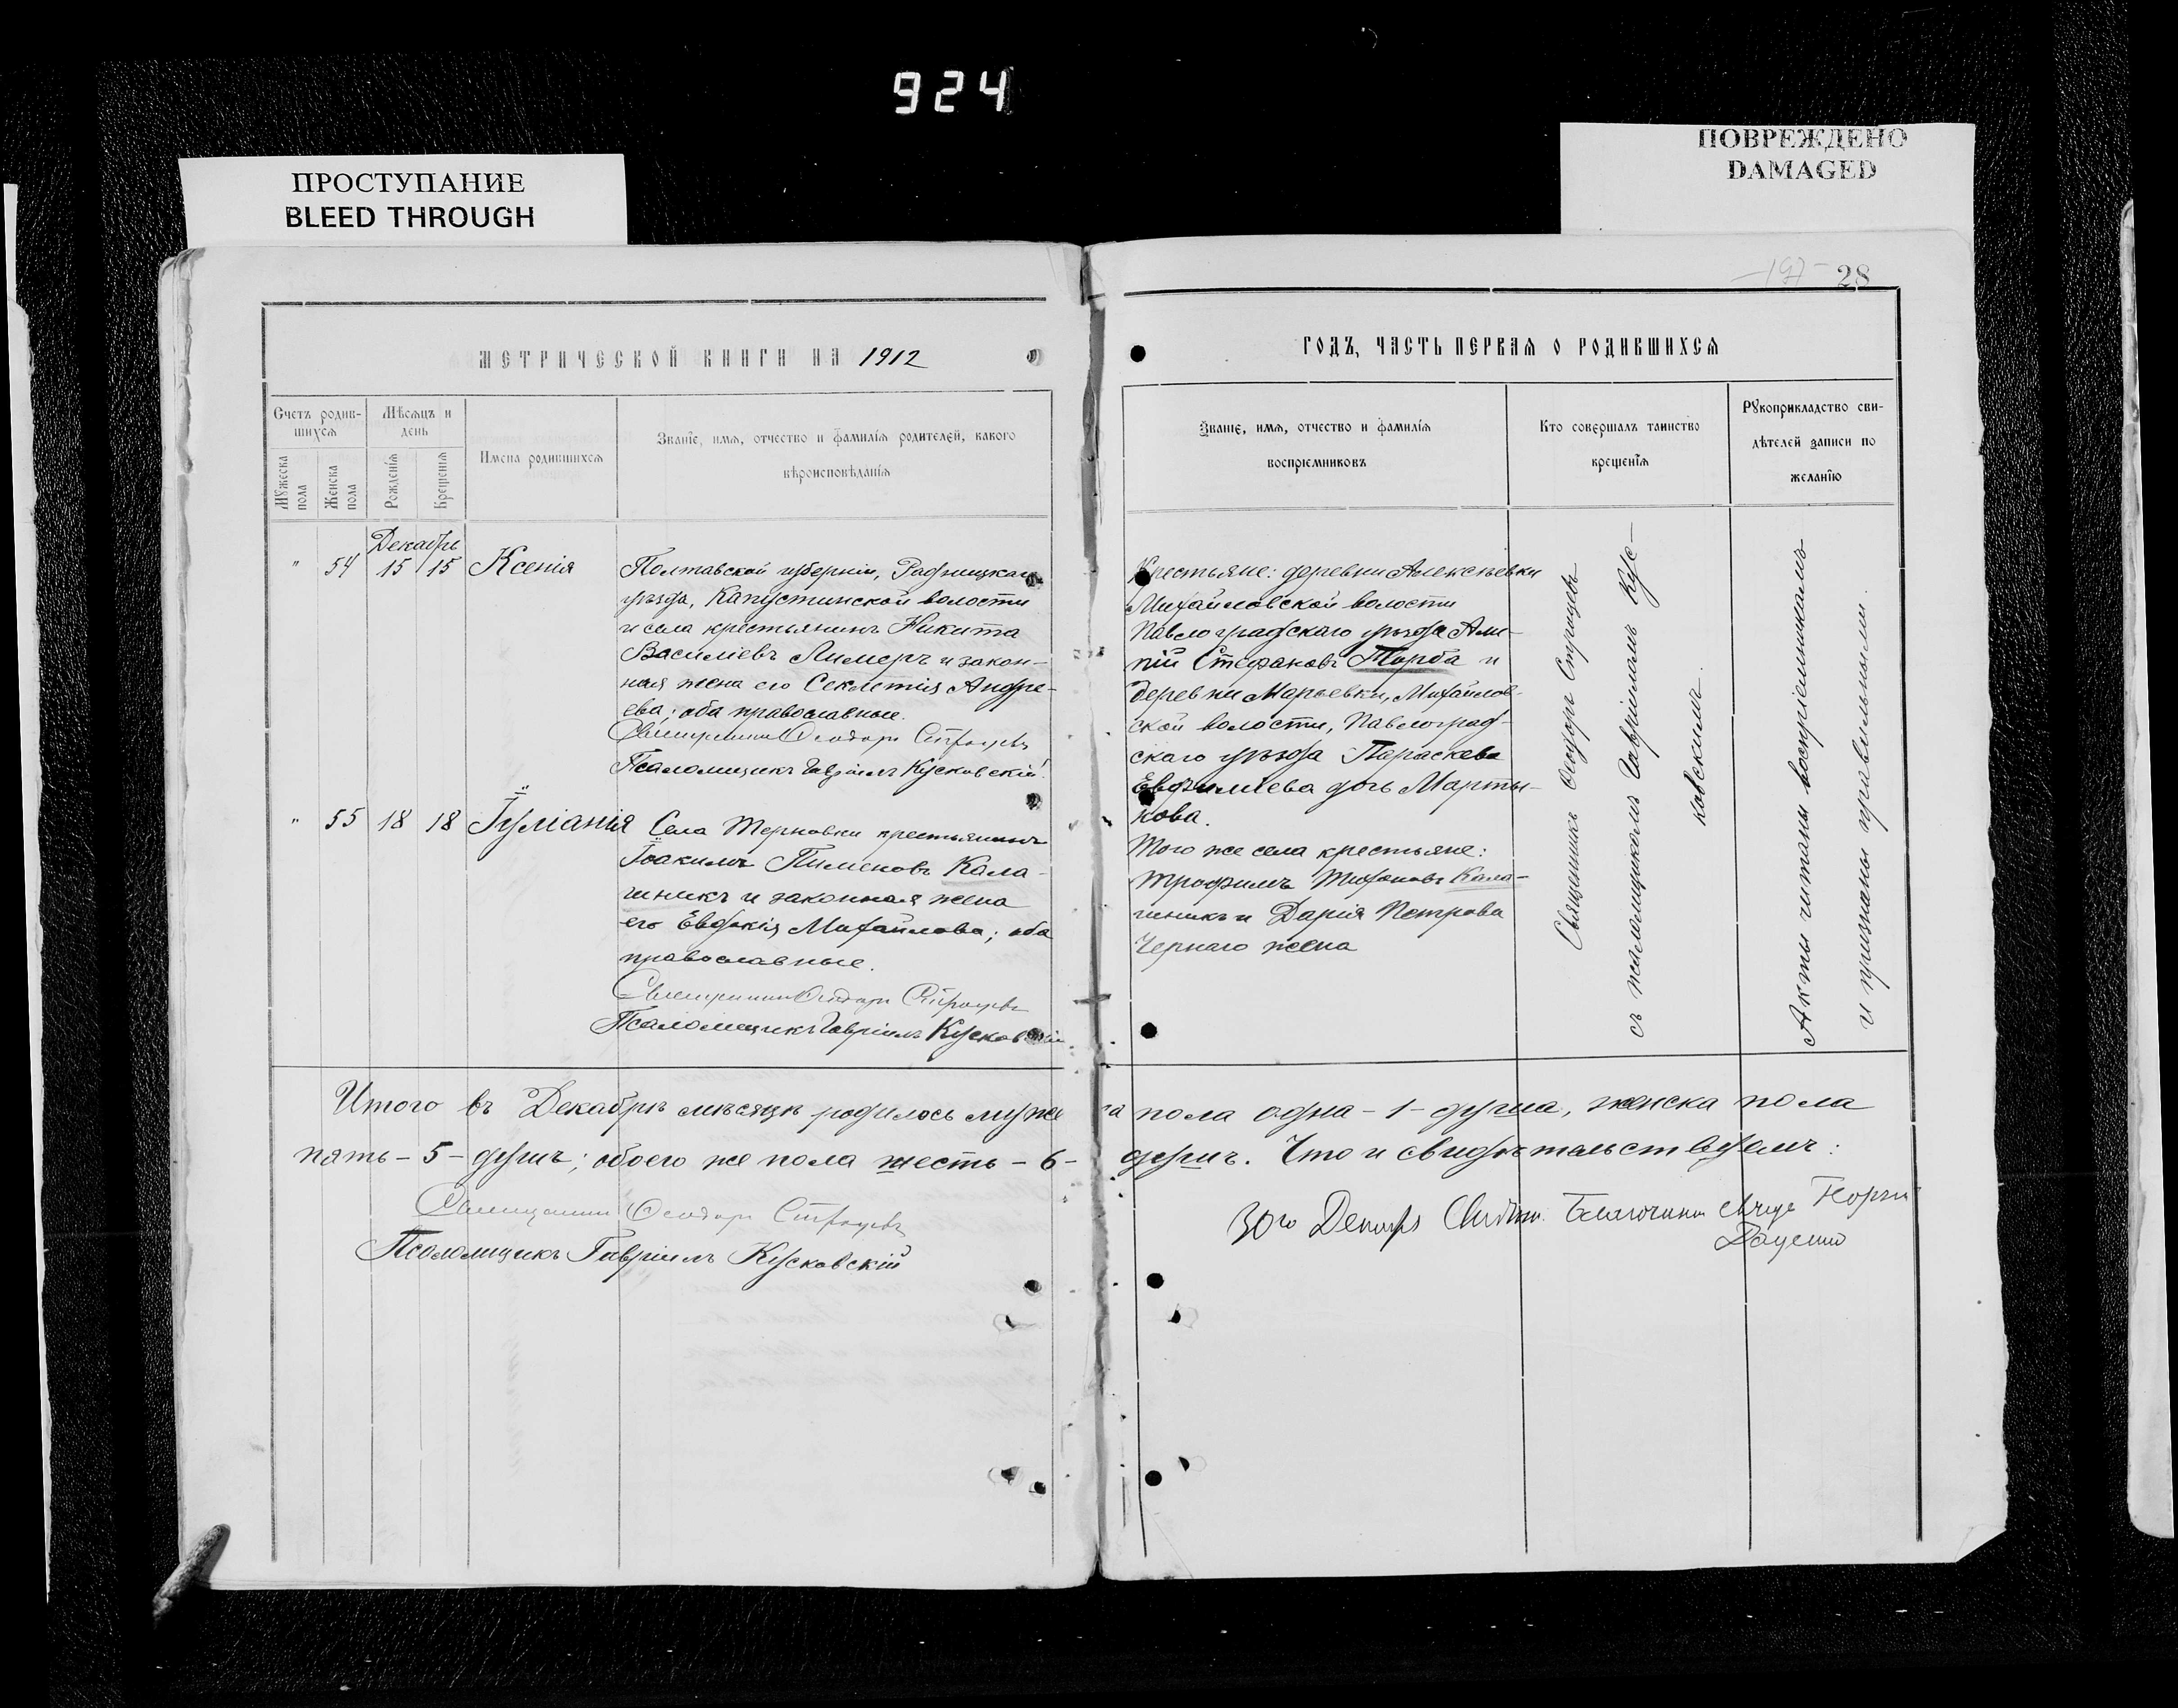 924
ПРОСТУПАНИЕ
BLEED THROUGH
ПОВРЕЖДЕНО
DAMAGED
28
МЕТРИЧЕСКОЙ КНИГИ НА 1912
ГОДЪ, ЧАСТЬ ПЕРВАЯ О РОДИВШИХСЯ
Счетъ родив-
шихся
Мужеска пола
Женска пола
Мѣсяцъ и
день
Рожденія
Крещенія
Имена родившихся
Званіе, имя, отчество и фамилія родителей, какого
вѣроисповѣданія
Званіе, имя, отчество и фамилія
воспріемниковъ
Кто совершалъ таинство
крещенія
Рукоприкладство сви-
дѣтелей записи по
желанію
Декабрь
" 54 15 15 Ксенія
Полтавской губерніи,
уѣзда, Капустинской волости
и села крестьянинъ Никита
Василіевъ Лимеръ и закон-
ная жена его Секлетія Андре-
ева; оба православные.
Священникъ Ѳеодоръ
Псаломщикъ Гавріилъ Кусковскій.
" 55 18 18 Іуліанія
Села Терновки крестьянинъ
Іоакимъ Пименовъ Кала-
шникъ и законная жена
его Евдокія Михайлова; оба
православные.
Священникъ Ѳеодоръ
Псаломщикъ Гавріилъ Кусковскій
Крестьяне: деревни Алексѣевки
Михайловской волости
Павлоградскаго уѣзда Али-
пій Стефановъ Торба и
деревни Марьевки, Михайлов-
ской волости, Павлоград-
скаго уѣзда Параскева
Евфиміева дочь Марты-
нова.
Того же села крестьяне:
Трофимъ Тихоновъ Кала-
шникъ и Дарія Петрова
Чернаго жена
Священникъ Ѳеодоръ
съ псаломщикомъ Гавріиломъ Кус-
ковскимъ.
Акты читаны воспріемникамъ
и признаны правильными.
Итого въ Декабрѣ мѣсяцѣ родилось мужеска пола одна - 1 - душа, женска пола
пять - 5 - душъ; обоего же пола шесть - 6 - душъ. Что и свидѣтельствуемъ:
Священникъ Ѳеодоръ
Псаломщикъ Гавріилъ Кусковскій
30го Декабря Благочинный